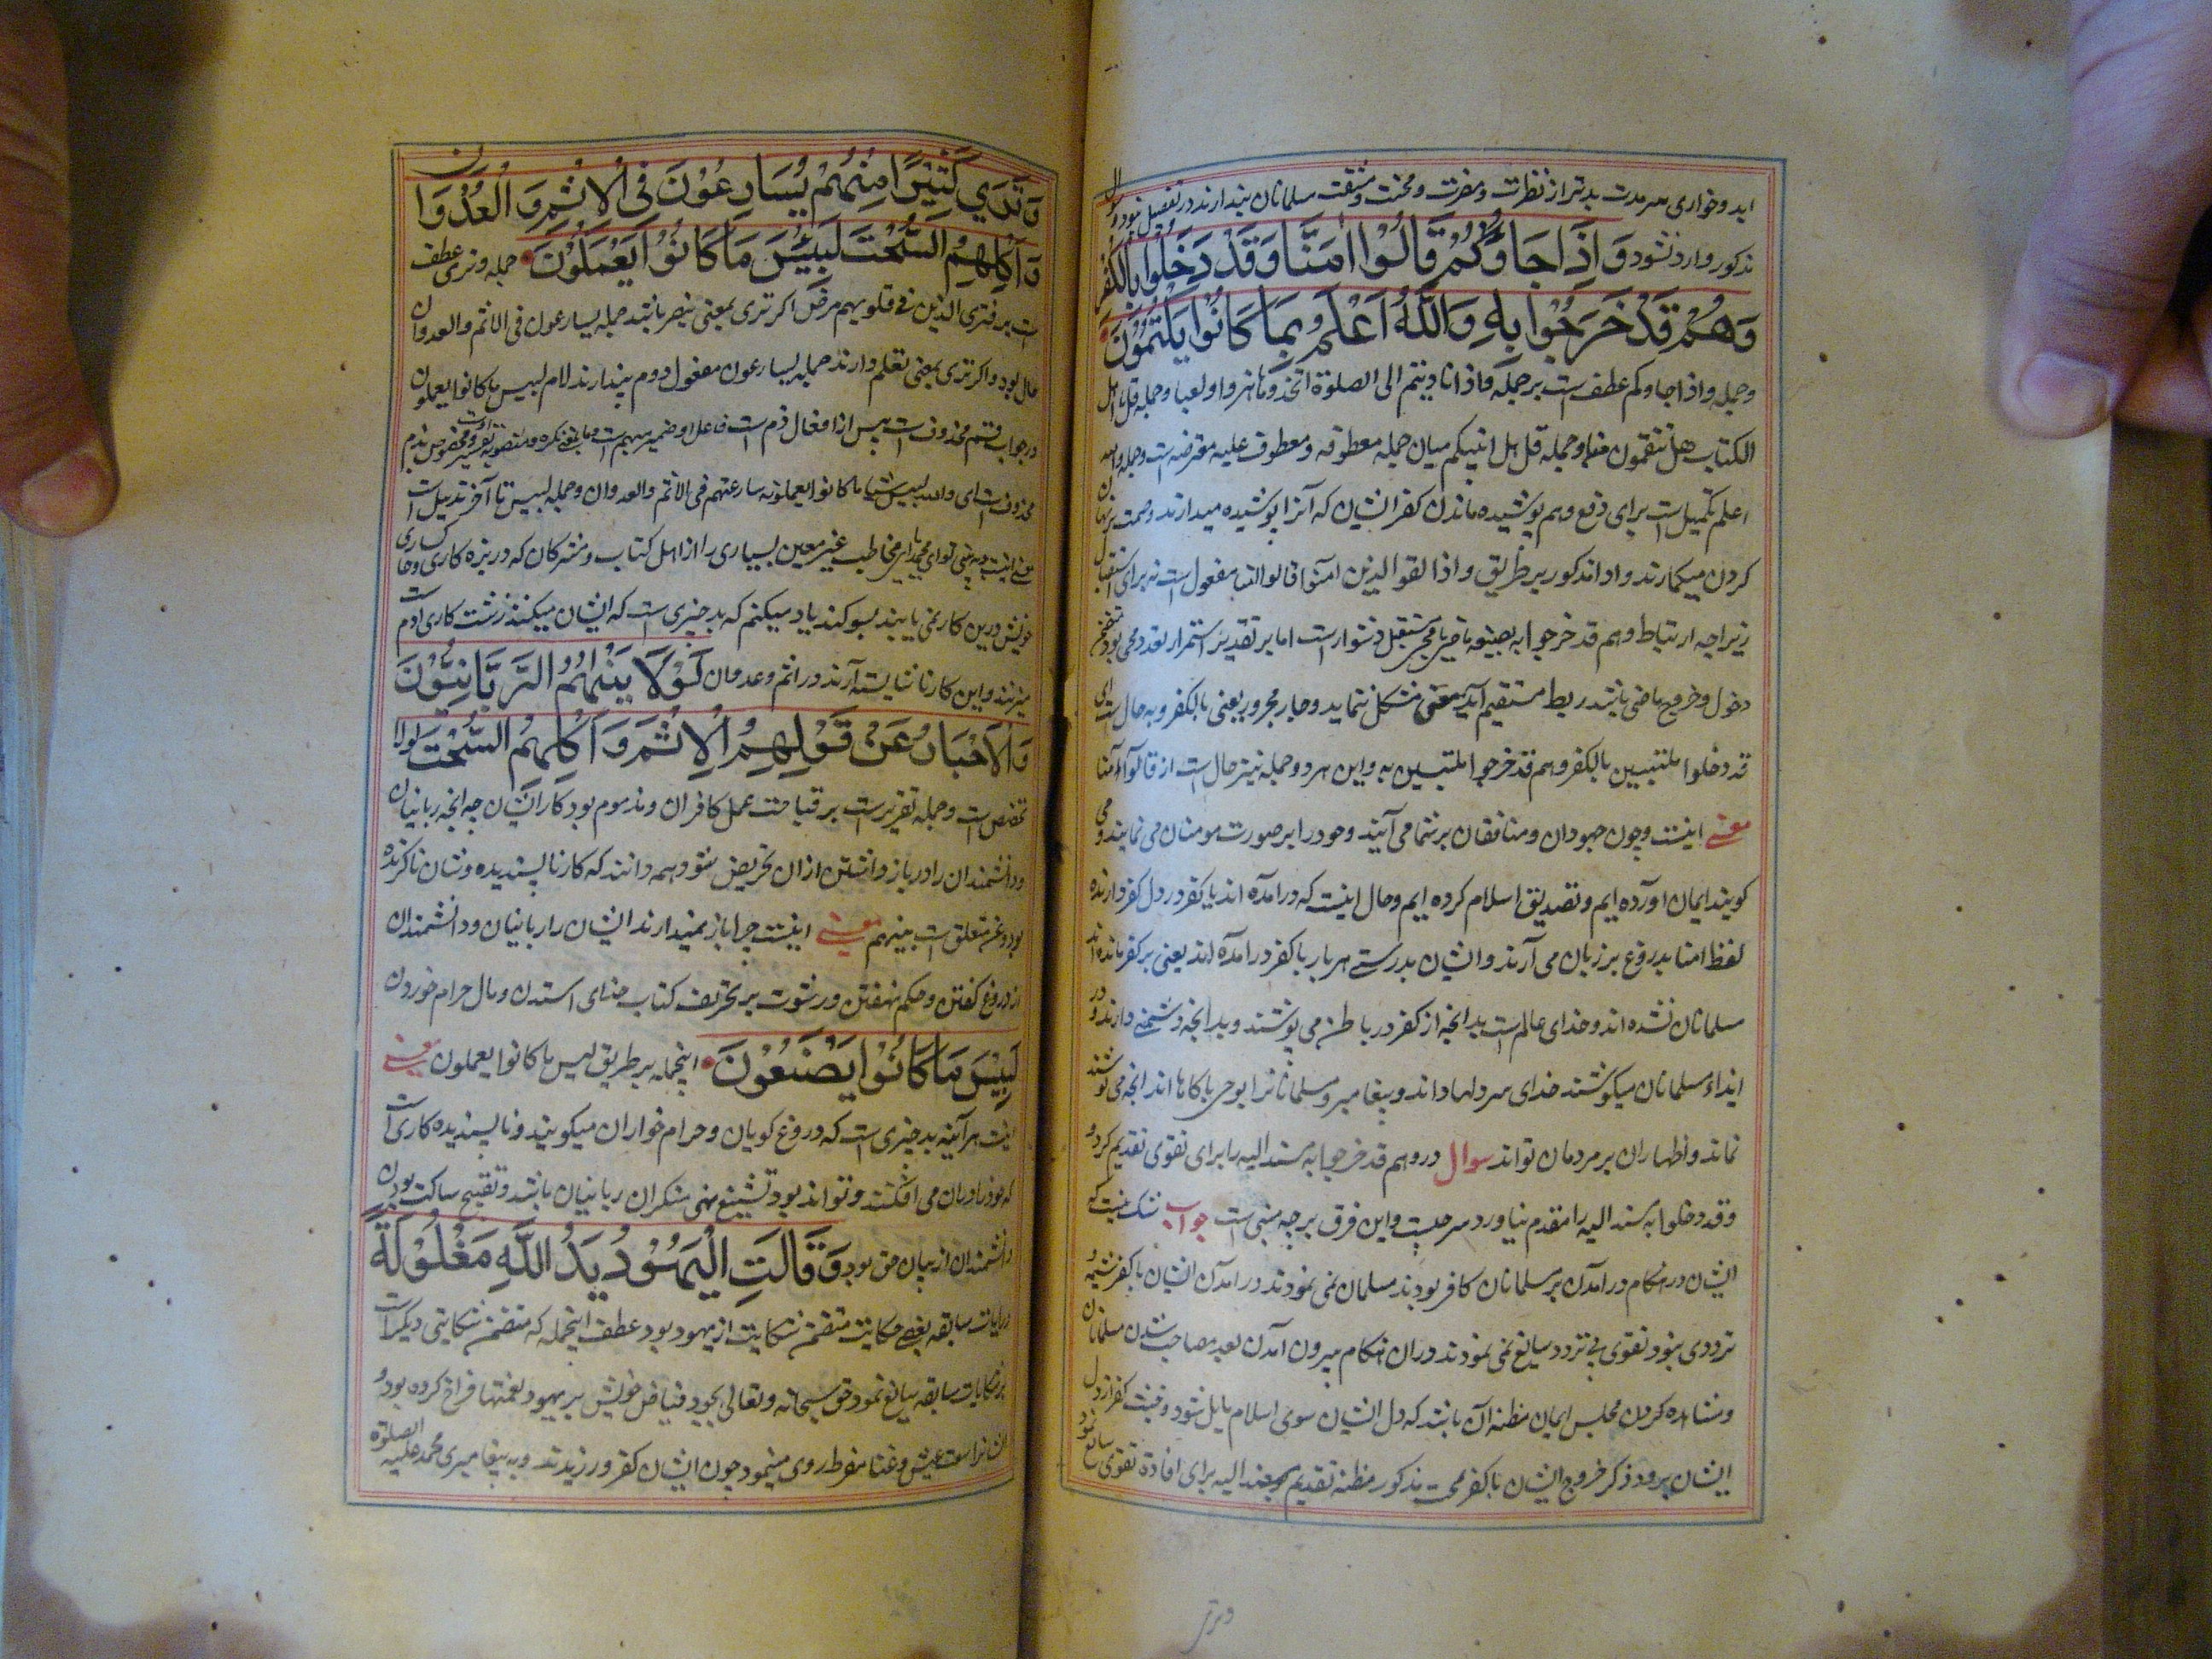 ابد و خواری سرمدت بدتر از نظرت و مضرت و محنت و مشقت مسلمانان پندارند در تفضیل نبود
مذکور وارد نشود وَاِذَا جَاؤُكُمْ قَالُوْا اٰمَنَّا وَقَدْ دَخَلُوْا بِالْكُفْرِ
وَهُمْ قَدْ خَرَجُوْا بِهٖ وَاللّٰهُ اَعْلَمُ بِمَا كَانُوْا يَكْتُمُوْنَ
وجمله واذا جاوکم عطف است بر جمله واذا نادیتم الی الصلوة اتخذوها هزوا ولعبا وجمله قل یا اهل
الکتاب هل تنقمون منا وجمله قل هل انبیکم میان جمله معطوفه و معطوف علیه معترضه است وجمله والله
اعلم تکمیل است برای دفع وهم پوشیده ماندن کفر ایشان که آنرا پوشیده میدارند
کردن میکمارند و اذا مذکور بر طریق واذا لقوا الذین امنوا قالوا امنا مفعول است نه برای استقبال
زیراچه ارتباط وهم قد خرجوا به بصیغه ماضی با مجی مستقبل دشوار است اما بر تقدیر استمرار
دخول و خروج ماضی باشد ربط مستقیم آید معنی مشکل ننماید و جار مجرور یعنی بالکفر و به حال است ای
قد دخلوا ملتبسین بالکفر وهم قد خرجوا ملتبسین به و این هر دو جمله نیز حال است از قالوا آمنا
معنی اینست و چون جهودان و منافقان بر شما می آیند و خود را بر صورت مومنان می نمایند و می
کویند ایمان آورده ایم و تصدیق اسلام کرده ایم و حال اینست که درامده اند با کفر در دل کفر دارنده
لفظ امنا بدروغ بر زبان می آرند و ایشان بدرستی هر بار با کفر درامده اند یعنی بر کفر مانده اند
مسلمانان نشده اند و خدای عالم است بدانچه از کفر در باطن می پوشند و بدانچه دشمنی دارند و در
ایذاء مسلمانان میکوشند خدای سر دلها داند و پیغامبر و مسلمانانرا بوحی با کاهاند انچه می پوشند
نماند و اظهار ان بر مردمان تواند سوال در وهم قد خرجوا به مسند الیه را برای تقوی تقدیم کرد و
وقد دخلوا به مسند الیه را مقدم نیاورد سر چیست و این فرق بر چه مبنی است جواب شک نیست که
ایشان در هنکام درامدن بر مسلمانان کافر بودند مسلمان نمی نمودند درامدن ایشان با کفر
ترددی نبود تقوی بی تردد سایغ نمی نمود در ان هنکام بیرون آمدن بعد مصاحب شدن مسلمانان
و مشاهده کردن مجلس ایمان مظنه آن باشد که دل ایشان سوی اسلام مایل شود و خبث کفر از دل
ایشان برود ذکر خروج ایشان با کفر مذکور مظنه تقدیم مسند الیه برای افاده تقوی سایغ نمود
وتری
وَتَرٰي كَثِيْرًا مِنْهُمْ يُسَارِعُوْنَ فِي الْاِثْمِ وَ الْعُدْوَانِ
وَاَكْلِهِمُ السُّحْتَ لَبِئْسَ مَا كَانُوْا يَعْمَلُوْنَ جمله وتری عطف
است بر فتری الذین فی قلوبهم مرض اکر تری بمعنی تبصر باشد جمله یسارعون فی الاثم والعدوان
حال بود و اکر تری بمعنی تعلم دارند جمله یسارعون مفعول دوم پندارند لام لبیس ما کانوا یعملون
در جواب قسم محذوف است بیس از افعال ذم است فاعل او ضمیر مبهم است
محذوف است ای والله لبیس شیا ما کانوا یعملونه مسارعتهم فی الاثم والعدوان وجمله لبیس تا آخر تذییل است
معنی اینست و می بینی تو ای محمد یا ای مخاطب غیر معین بسیاری را از اهل کتاب و مشرکان که در بزه کاری
خویش درین کار نمی یابند سوکند یاد میکنم که بد چیزی است که ایشان میکنند زشت کاری است
میزنند و این کار ناشایسته آرند در اثم و عدوان لَوْلَا يَنْهٰهُمُ الرَّبَّانِيُّوْنَ
وَالْاَحْبَارُ عَنْ قَوْلِهِمُ الْاِثْمَ وَاَكْلِهِمُ السُّحْتَ لولا
تحضیض است و جمله تقریر است بر قباحت عمل کافران و مذموم بود کار ایشان چه انچه ربانیان
و دانشمندان را در باز داشتن از ان تحریض شود همه دانند که کار ناپسندیده و نشان ناکرده
بود و عن متعلق است بینهم معنی اینست چرا باز نمیدارند ایشان را ربانیان و دانشمندان
از دروغ کفتن و حکم نهفتن و رشوت بر تحریف کتاب خدای استدن و مال حرام خوردن
لَبِئْسَ مَا كَانُوْا يَصْنَعُوْنَ اینجمله بر طریق لبیس ما کانوا یعملون معنی
اینست هر آینه بد چیزی است که دروغ کویان و حرام خواران میکویند و ناپسندیده کاری است
که خود را در ان می افکنند و تواند بود تشنیع نهی منکران ربانیان باشد و تقبیح ساکت بودن
دانشمندان از بیان حق بود وَقَالَتِ الْيَهُوْدُ يَدُ اللّٰهِ مَغْلُوْلَةٌ
در ایات سابقه بعضی حکایت متضمن شکایت از یهود بود عطف اینجمله که متضمن شکایتی دیکر است
بر حکایات سابقه سایغ نمود حق سبحانه و تعالی بجود فیاض خویش بر یهود نعمتها فراخ کرده بود و
ایشانرا سعت عیش و غنا مفرط روی مینمود چون ایشان کفر ورزیدند و به پیغامبری محمد علیه الصلوة